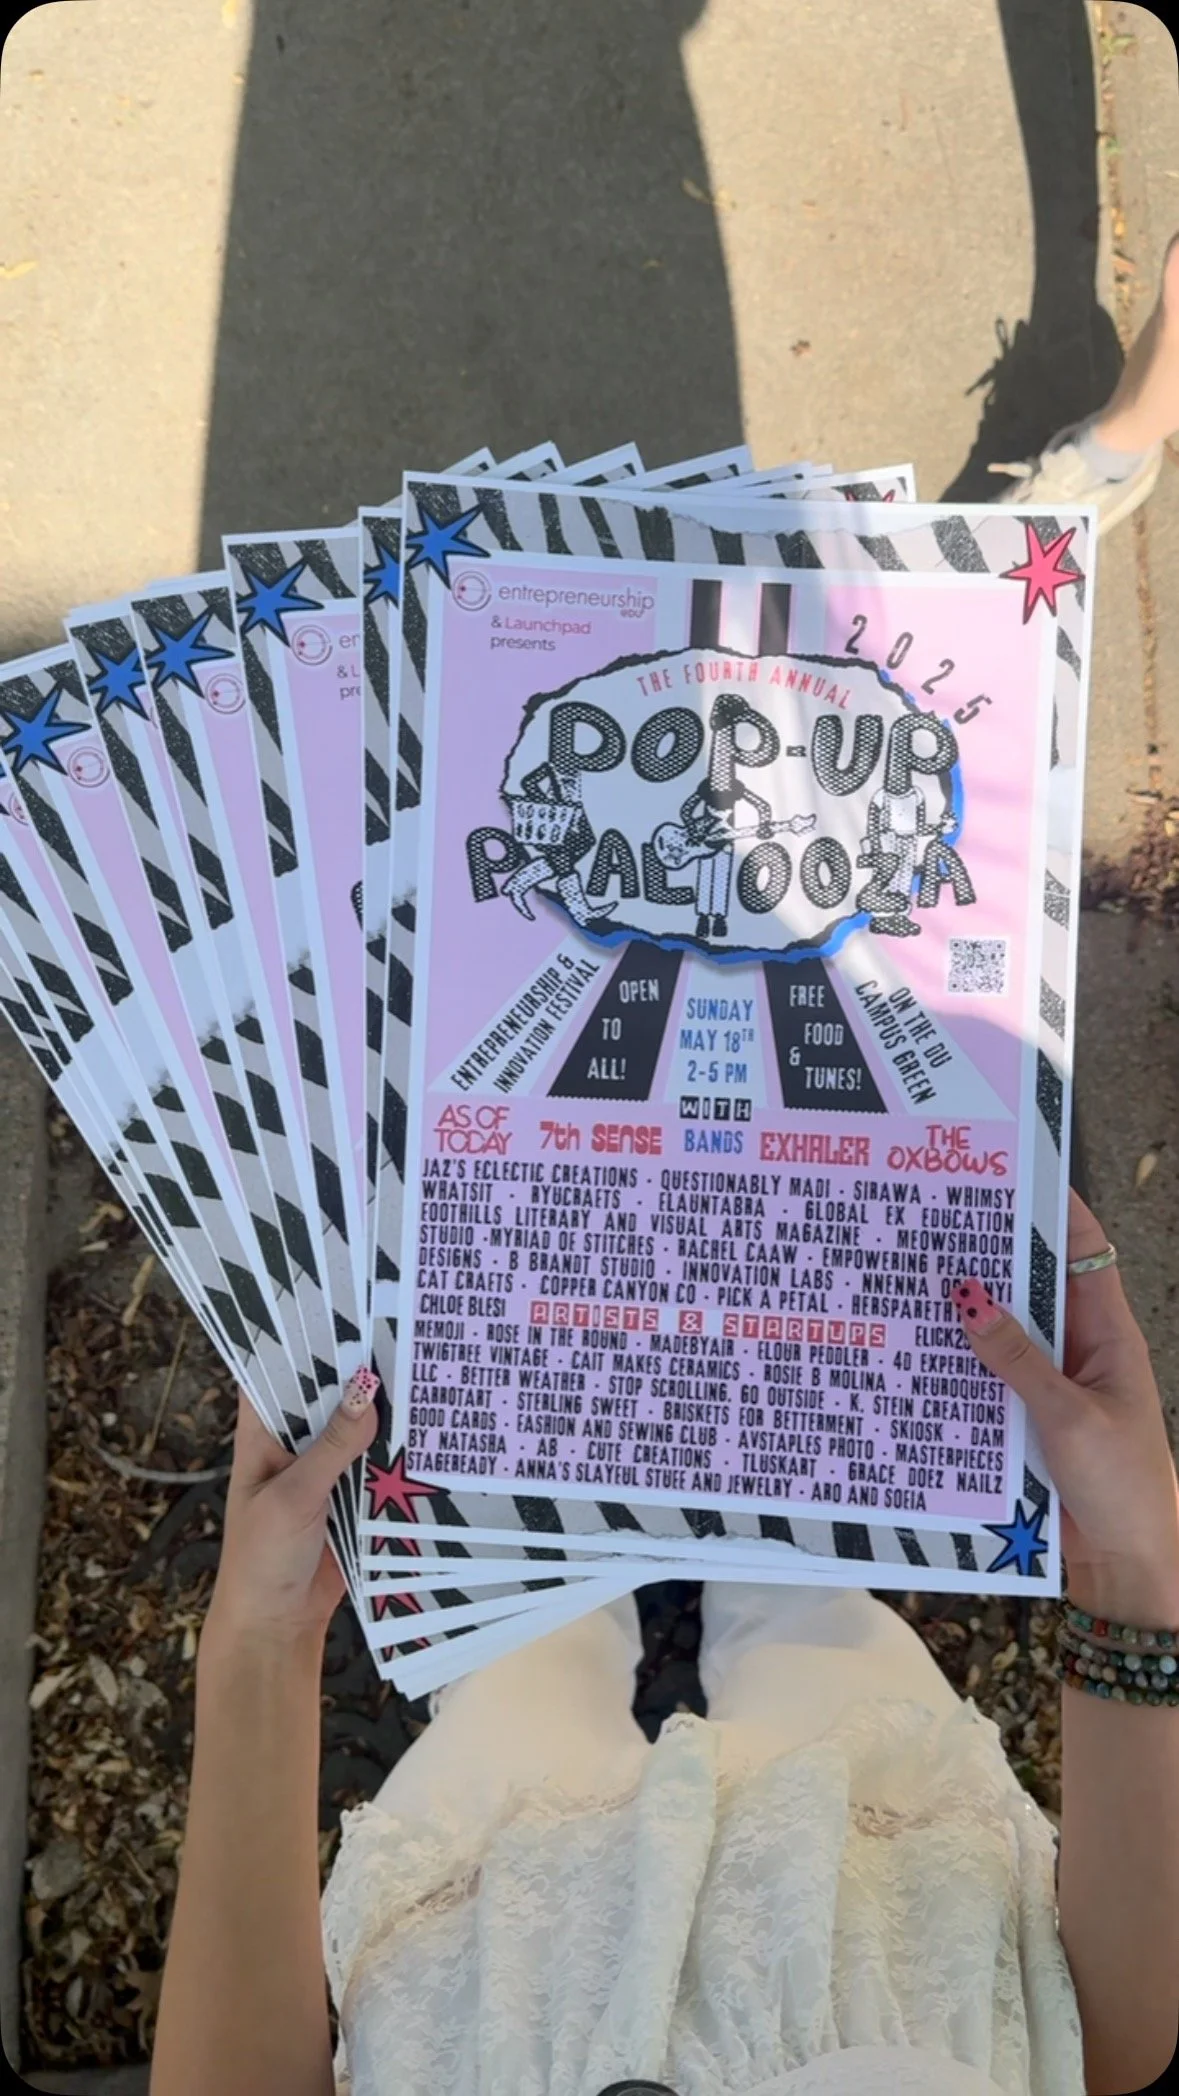 entrepreneurship
edu
& Launchpad
presents
2025
THE FOURTH ANNUAL
POP-UP
PALOOZA
ENTREPRENEURSHIP &
INNOVATION FESTIVAL
OPEN
TO
ALL!
SUNDAY
MAY 18TH
2-5 PM
FREE
FOOD
&
TUNES!
ON THE DU
CAMPUS GREEN
WITH
BANDS
AS OF
TODAY
7th SENSE
EXHALER
THE
OXBOWS
JAZ'S ECLECTIC CREATIONS · QUESTIONABLY MADI · SIRAWA · WHIMSY
WHATSIT · RYUCRAFTS · FLAUNTABRA · GLOBAL EX EDUCATION
FOOTHILLS LITERARY AND VISUAL ARTS MAGAZINE · MEOWSHROOM
STUDIO · MYRIAD OF STITCHES · RACHEL CAAW · EMPOWERING PEACOCK
DESIGNS · B BRANDT STUDIO · INNOVATION LABS · NNENNA
CAT CRAFTS · COPPER CANYON CO · PICK A PETAL
CHLOE BLESI
ARTISTS & STARTUPS
MEMOJI · ROSE IN THE ROUND · MADEBYAIR · FLOUR PEDDLER · 4D
TWIGTREE VINTAGE · CAIT MAKES CERAMICS · ROSIE B MOLINA · NEUROQUEST
LLC · BETTER WEATHER · STOP SCROLLING, GO OUTSIDE · K. STEIN CREATIONS
CARROTART · STERLING SWEET · BRISKETS FOR BETTERMENT · SKIOSK · DAM
GOOD CARDS · FASHION AND SEWING CLUB · AVSTAPLES PHOTO · MASTERPIECES
BY NATASHA · AB · CUTE CREATIONS · TLUSKART · GRACE DOEZ NAILZ
STAGEREADY · ANNA'S SLAYFUL STUFF AND JEWELRY · ARO AND SOFIA
en
& L
pre